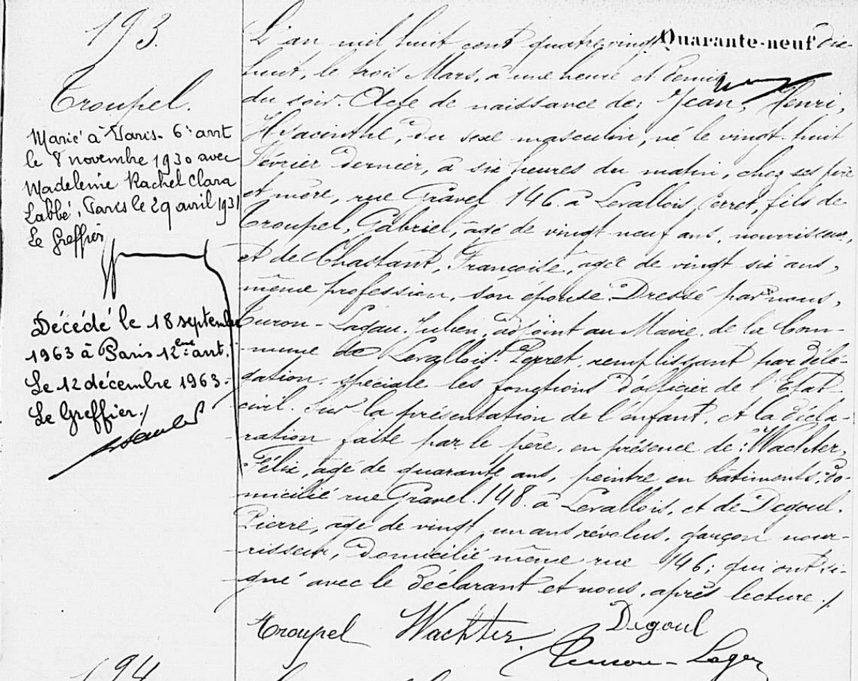 193.
Troupel.
Marié à Paris 6e arrt
le 8 novembre 1930 avec
Madeleine Rachel Clara
Labbé, Paris le 29 avril 1931
Le Greffier
Décédé le 18 septembre
1963 à Paris 12ème arrt.
Le 12 décembre 1963.
Le Greffier ./.
L'an mil huit cent quatre vingt Quarante-neuf dix
huit, le trois Mars, à une heure et demie
du soir. Acte de naissance de: Jean, Henri,
Hyacinthe, du sexe masculin, né le vingt huit
Février dernier, à six heures du matin, chez ses père
et mère, rue Gravel 146 à Levallois Perret, fils de
Troupel, Gabriel, âgé de vingt neuf ans, nourrisseur,
et de Chastant, Françoise, âgée de vingt six ans,
même profession, son épouse. Dressé par nous,
Julien, adjoint au Maire de la Com-
mune de Levallois-Perret, remplissant par délé-
gation spéciale les fonctions d'officier de l'Etat
civil. Sur la présentation de l'enfant et la décla-
ration faite par le père, en présence de: Wachter,
Félix, âgé de quarante ans, peintre en bâtiments, do-
micilié rue Gravel 148 à Levallois, et de Degoul,
Pierre, âgé de vingt un ans révolus, garçon nour-
risseur, domicilié même rue 146; qui ont si-
gné avec le déclarant et nous, après lecture ./.
Troupel Wachter. Degoul
194